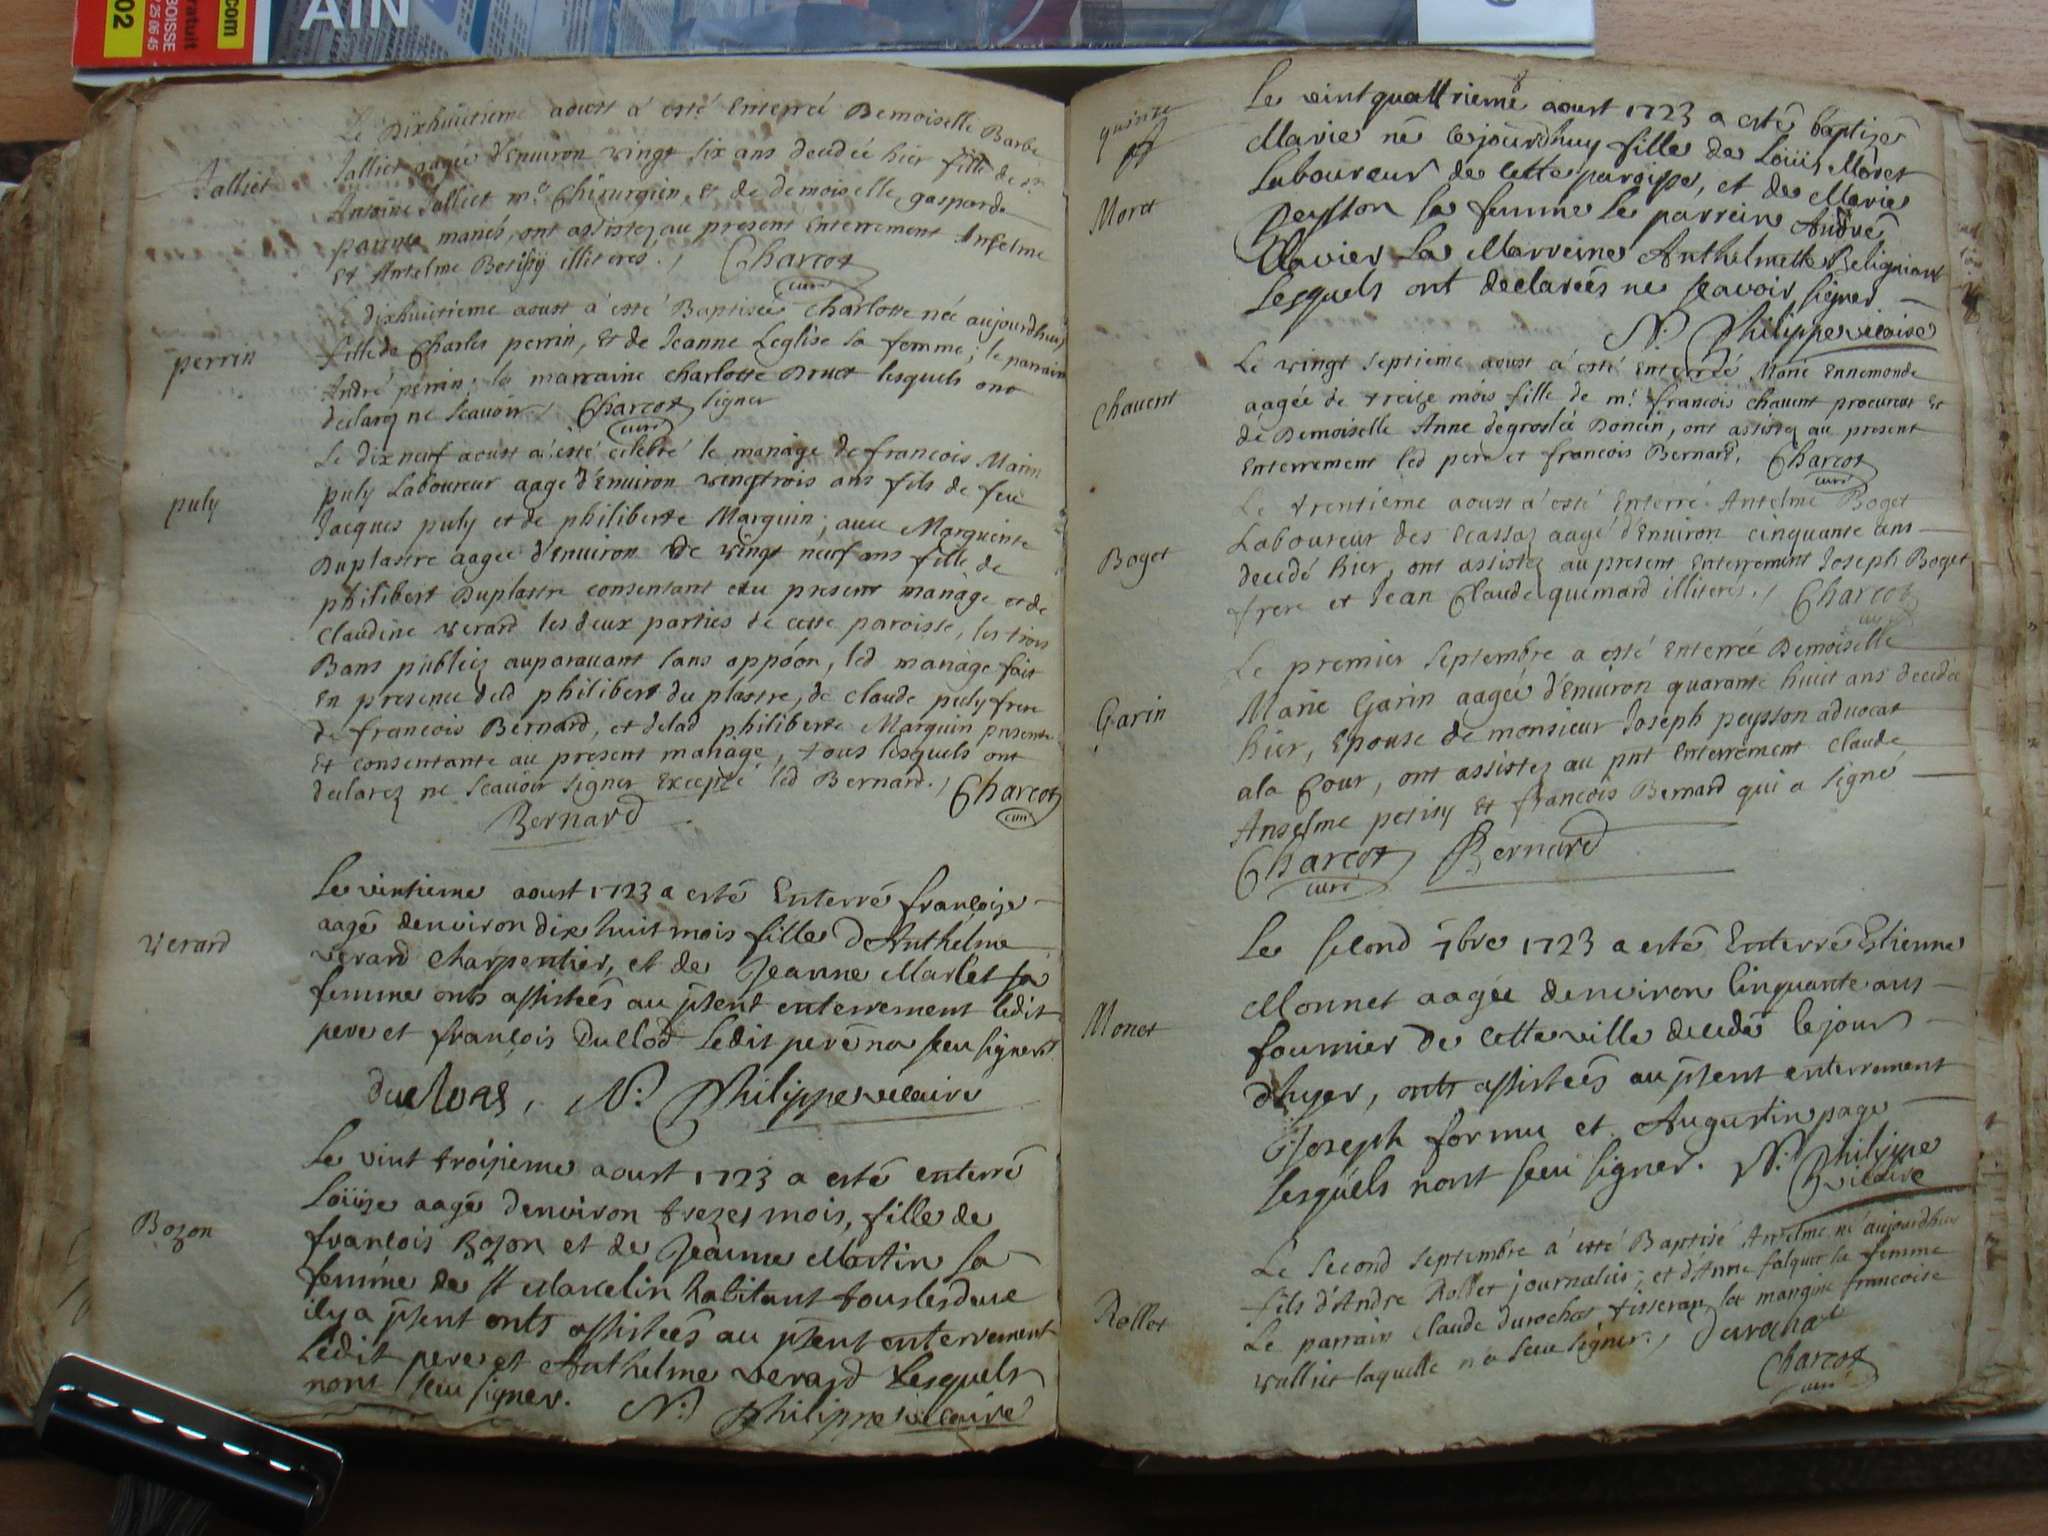 AIN
.com
ratuit
BOISSE
25 06 45
02
Le Dixhuitieme aoust a esté Enterreé Demoiselle Barbe
Jalliet
Jalliet aageé d'Environ vingt six ans decedeé hier fille de sr
Antoine Jalliet me Chirurgien, et de demoiselle gasparde
mariés, ont assistez au present Enterrement Anselme
Et Antelme illiteres./ Charcot
curé
Le dixhuitieme aoust a esté Baptiseé Charlotte neé aujourdhuy
perrin
fille de Charles perrin, Et de Jeanne Leglise sa femme; le parrain
André perrin; la marraine charlotte Druet lesquels ont
declarez ne scavoir signer Charcot
curé
Le dix neuf aoust a esté celebré le mariage de francois Marin
puly
puly Laboureur aagé d'Environ vingtrois ans fils de feu
Jacques puly et de philiberte Marguin; avec Marguerite
Duplastre aageé d'Environ de vingt neuf ans fille de
philibert Duplastre consentant au present mariage et de
Claudine verard les deux parties de cette paroisse, les trois
Bans publiez auparavant sans oppóon, led mariage fait
En presence dud philibert du plastre, de Claude puly frere
de francois Bernard, et delad philiberte Marguin presente
Et consentante au present mariage, tous lesquels ont
declarez ne scavoir signer Excepté led Bernard./ Charcot
curé
Bernard
Le vintieme aoust 1723 a esté Enterré françoise
aagé denviron dix huit mois fille d'Anthelme
Verard
verard Charpentier, et de Jeanne Marlet sa
femme onts assistées au pñent enterrement ledit
pere et françois Duclod Ledit pere na sceu signer
duclos, N. Philippe vicaire
Le vint troisieme aoust 1723 a esté enterré
Loüise aagé denviron trezes mois, fille de
Bozon
françois Bozon et de Jeanne Martin sa
femme de st Marcelin habitant tous les deux
icy a pñent onts assistées au pñent enterrement
Ledit pere et Anthelme verard Lesquels
nont sceu signer. N. Philippe vicaire
quinze
Le vintquattrieme aoust 1723 a esté baptizé
Marie né cejourdhuy fille de Loüis Moret
Moret
Laboureur de cette paroisse, et de Marie
Peysson sa femme Le parrein André
Clavier La Marreine Anthelmette Belignant
Lesquels ont declarées ne scavoir signer
N. Philippe vicaire
Le vingt septieme aoust a esté Enterré Marie Ennemonde
Chavent
aageé de treize mois fille de me francois Chavent procureur et
de Demoiselle Anne degrosleé Doncin, ont assistez au present
Enterrement led pere et francois Bernard. Charcot
curé
Le trentieme aoust a esté Enterré Antelme Boget
Boget
Laboureur des Ecassaz aagé d'Environ cinquante ans
decedé hier, ont assistez au present Enterrement Joseph Boget
frere et Jean Claude quemard illiteres./ Charcot
curé
Le premier septembre a esté Enterreé Demoiselle
Garin
Marie Garin aageé d'Environ quarante huit ans decedeé
hier, Epouse de monsieur Joseph peysson advocat
ala Cour, ont assistez au pnt Enterrement Claude
Anselme petity Et francois Bernard qui a signé
Charcot Bernard
curé
Le second 7bre 1723 a esté Enterré Estienne
Monet
Monnet aagée denviron Cinquante ans
fournier de cette ville decedé le jour
dhyer, onts assistées au pñent enterrement
Joseph formu et Augustin page
Lesquels nont sceu signer. N. Philippe
vicaire
Le second septembre a esté Baptisé Anselme né aujourdhuy
Rollet
fils d'André Rollet journalier; et d'Anne falquet sa femme
Le parrain Claude durochat tisseran, la marraine francoise
vulliet laquelle n'a sceu signer./ durochat
Charcot
curé